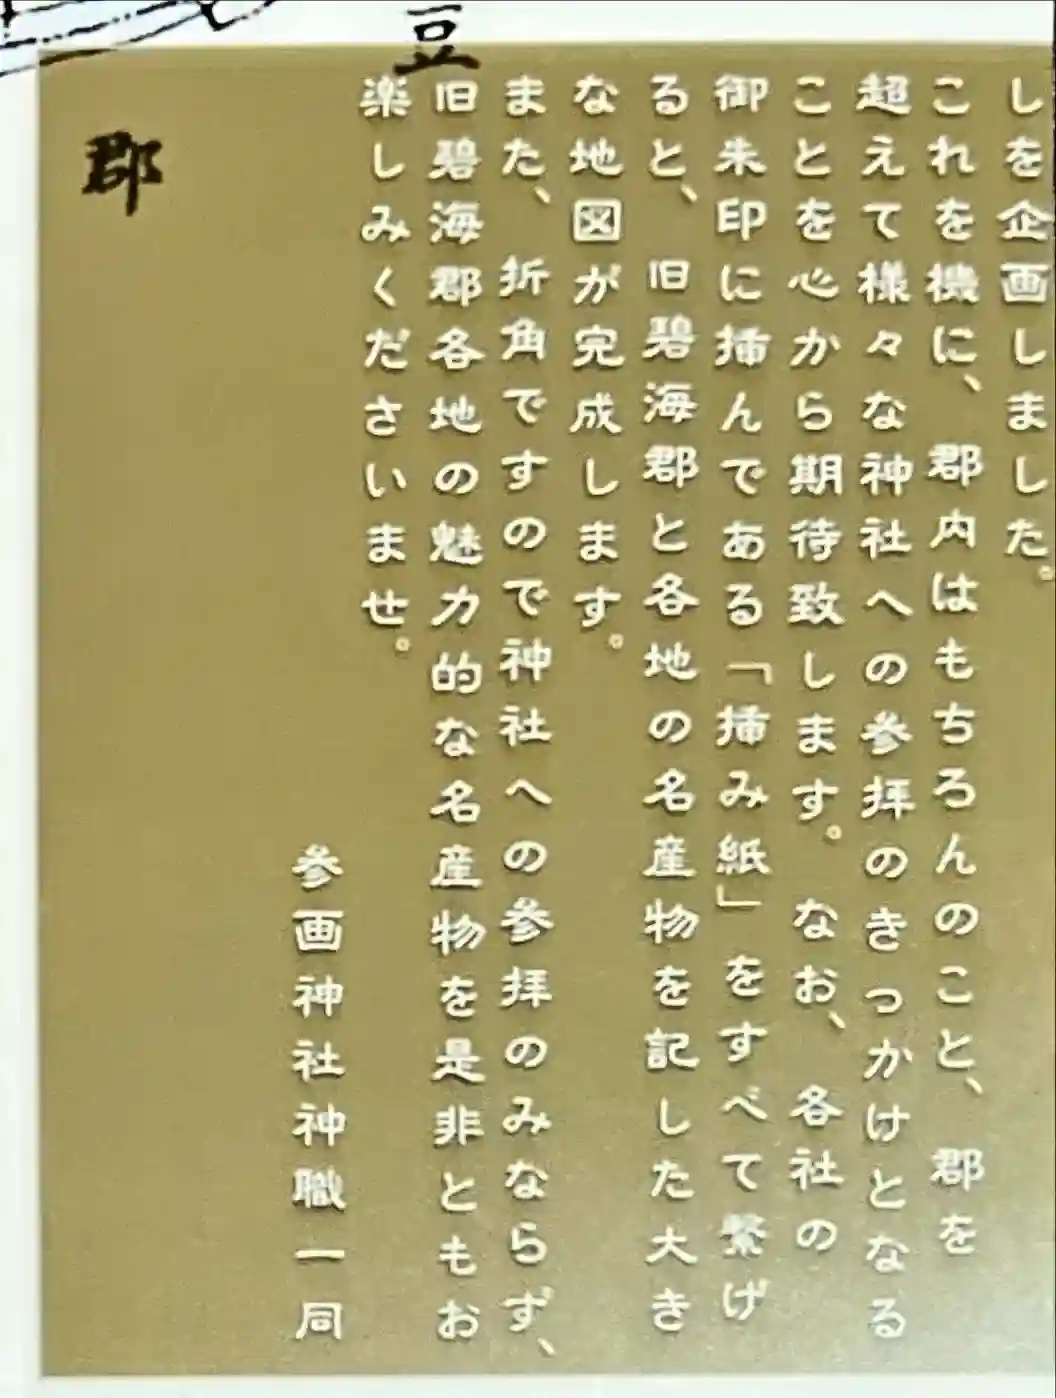 豆
しを企画しました。
これを機に、郡内はもちろんのこと、郡を
超えて様々な神社への参拝のきっかけとなる
ことを心から期待致します。なお、各社の
御朱印に挿んである「挿み紙」をすべて繋げ
ると、旧碧海郡と各地の名産物を記した大き
な地図が完成します。
また、折角ですので神社への参拝のみならず、
旧碧海郡各地の魅力的な名産物を是非ともお
楽しみくださいませ。
参画神社神職一同
郡